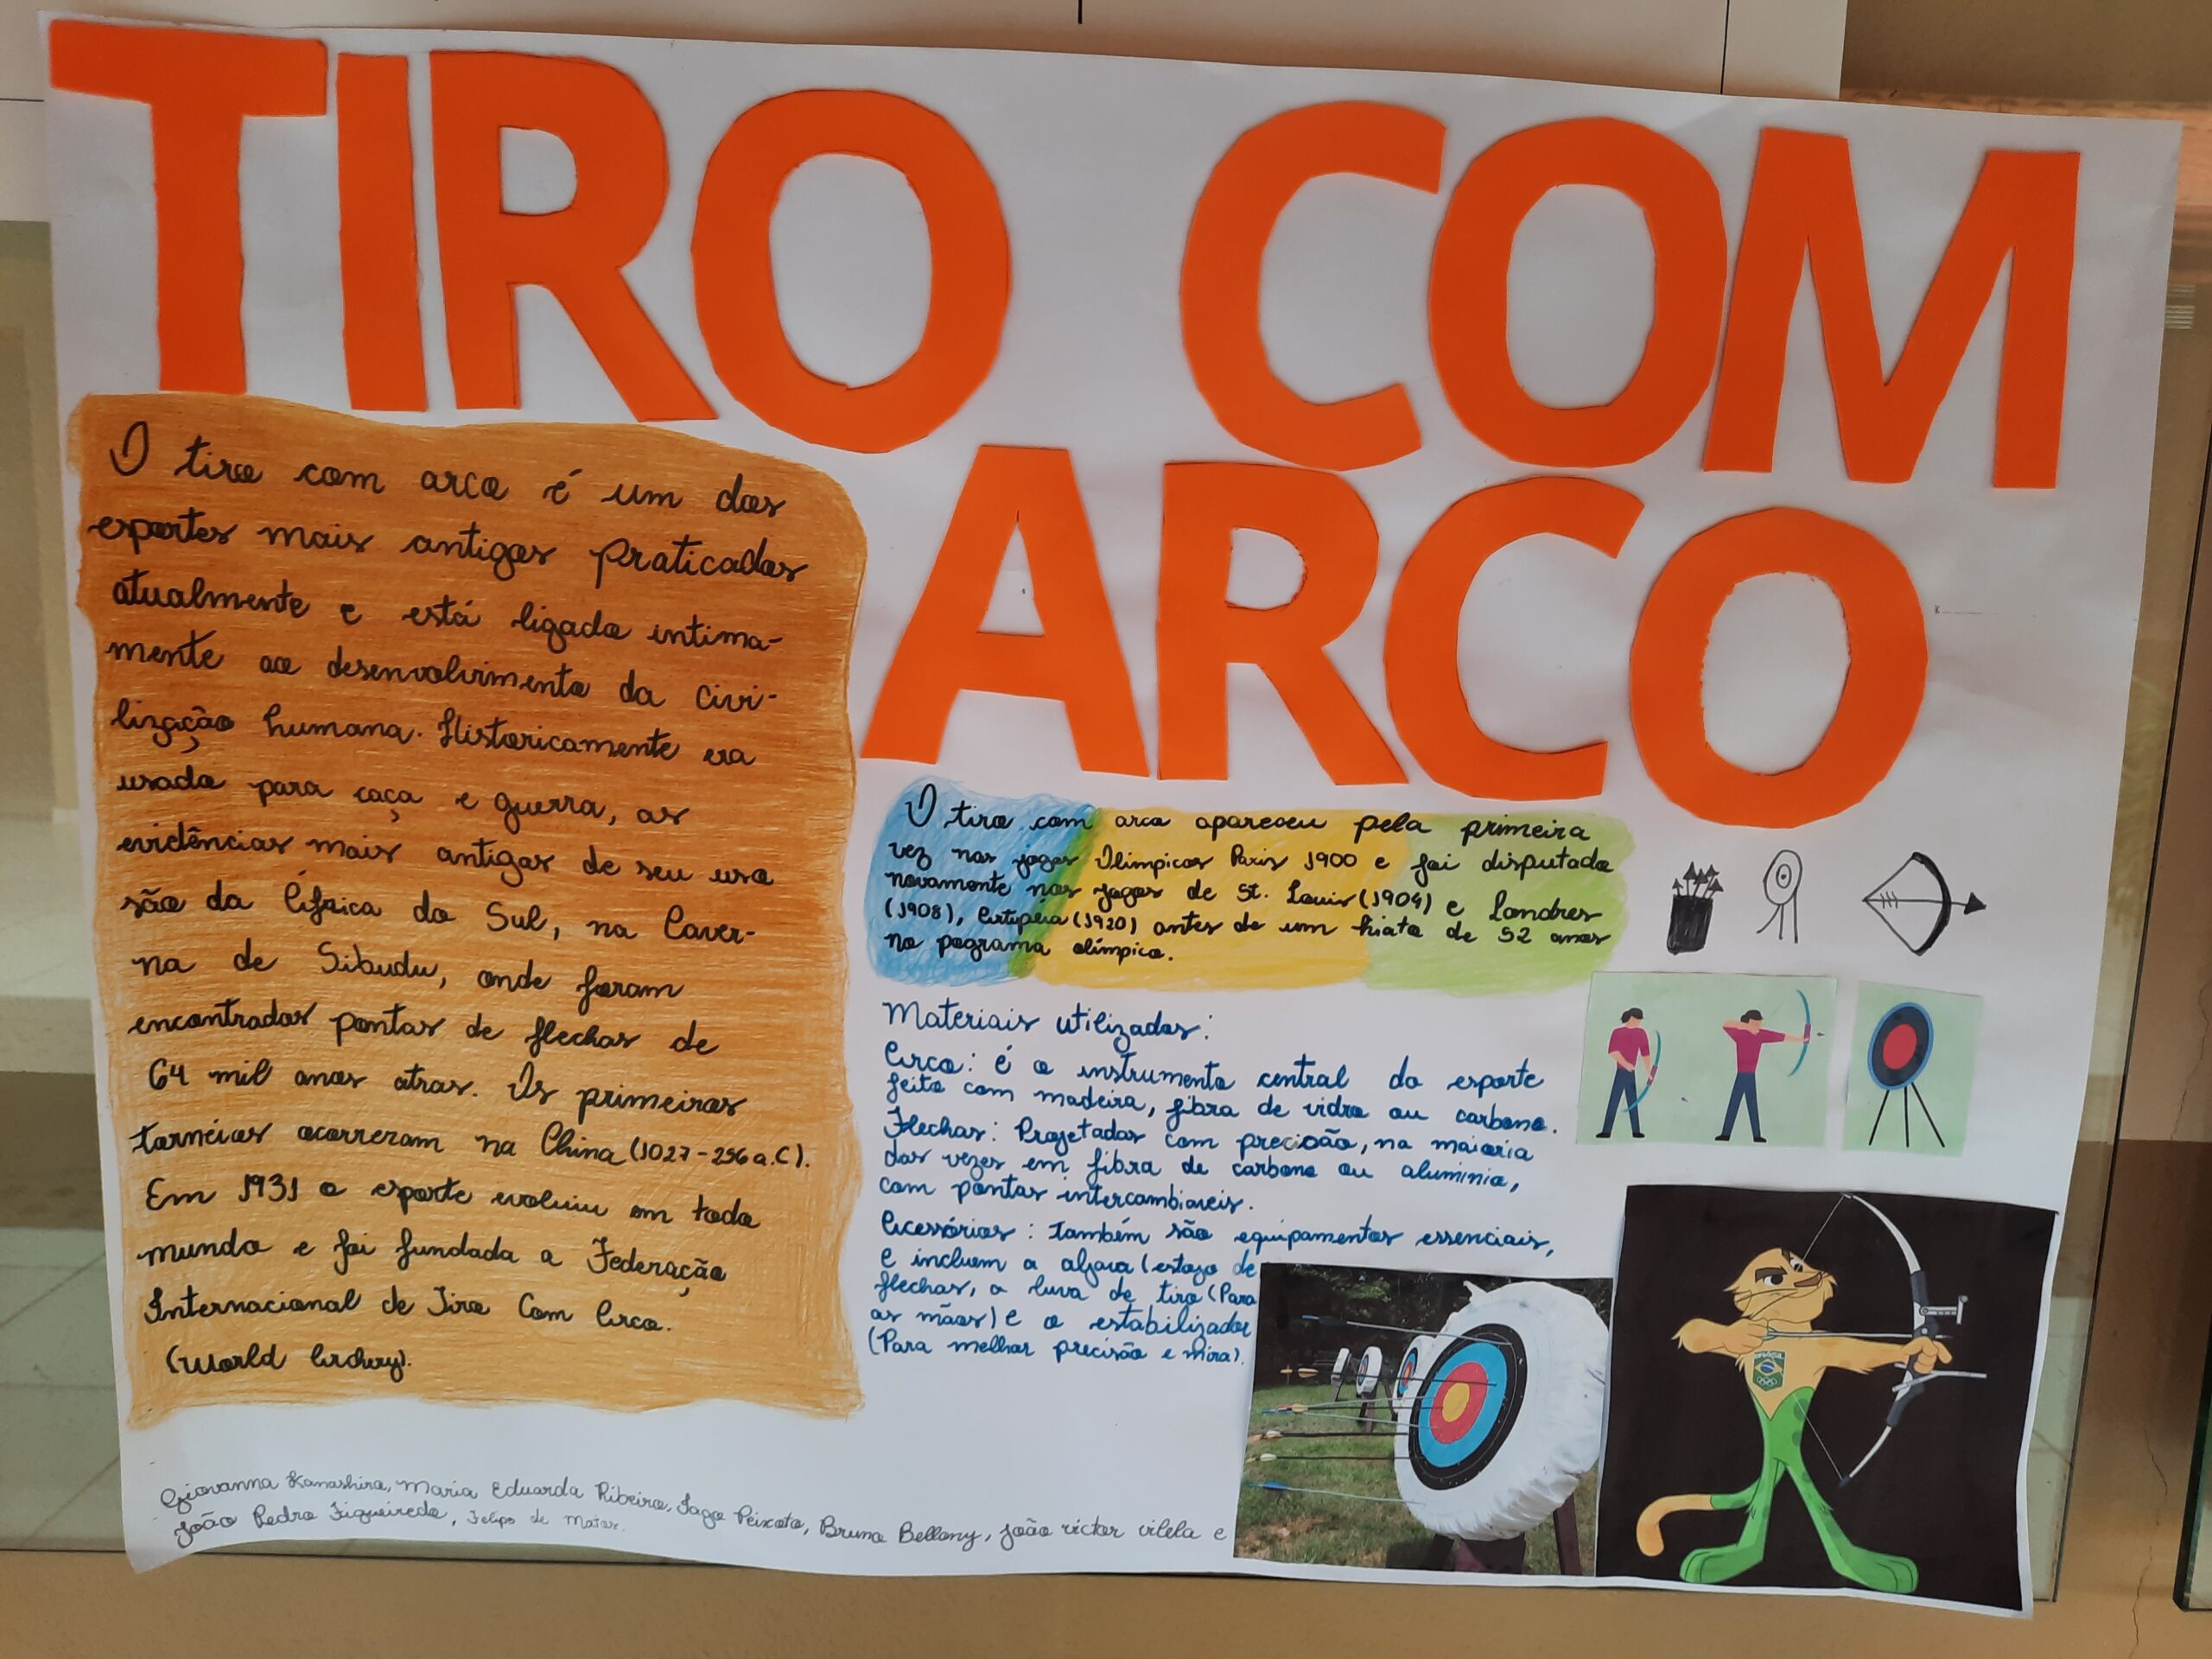 TIRO COM
ARCO
O tiro com arco é um dos
esportes mais antigos praticados
atualmente e está ligado intima-
mente ao desenvolvimento da civi-
lização humana. Historicamente era
usado para caça e guerra, as
evidências mais antigas de seu uso
são da África do Sul, na Caver-
na de Sibudu, onde foram
encontradas pontas de flechas de
64 mil anos atras. Os primeiros
torneios ocorreram na China (1027-256 a.C).
Em 1931 o esporte evoluiu em todo
mundo e foi fundada a Federação
Internacional de Tiro Com Arco.
(World Archery).
O tiro com arco apareceu pela primeira
vez nos jogos Olimpicos Paris 1900 e foi disputado
novamente nos jogos de St. Louis (1904) e Londres
(1908), (1920) antes de um hiato de 52 anos
no pograma olímpico.
Materiais utilizados:
Arco: é o instrumento central do esporte
feito com madeira, fibra de vidro ou carbono.
Flechas: Projetadas com precisão, na maioria
das vezes em fibra de carbono ou aluminio,
com pontas intercambiaveis.
Acessórios: Também são equipamentos essenciais,
e incluem a aljava (estojo de
flechas, a luva de tiro (Para
as mãos) e o estabilizador
(Para melhor precisão e mira).
BRASIL
Giovanna Kanashiro, Maria Eduarda Ribeiro, Iago Peixoto, Bruno Bellony, João victor vilela e
João Pedro Figueiredo, Felipo de Matos.